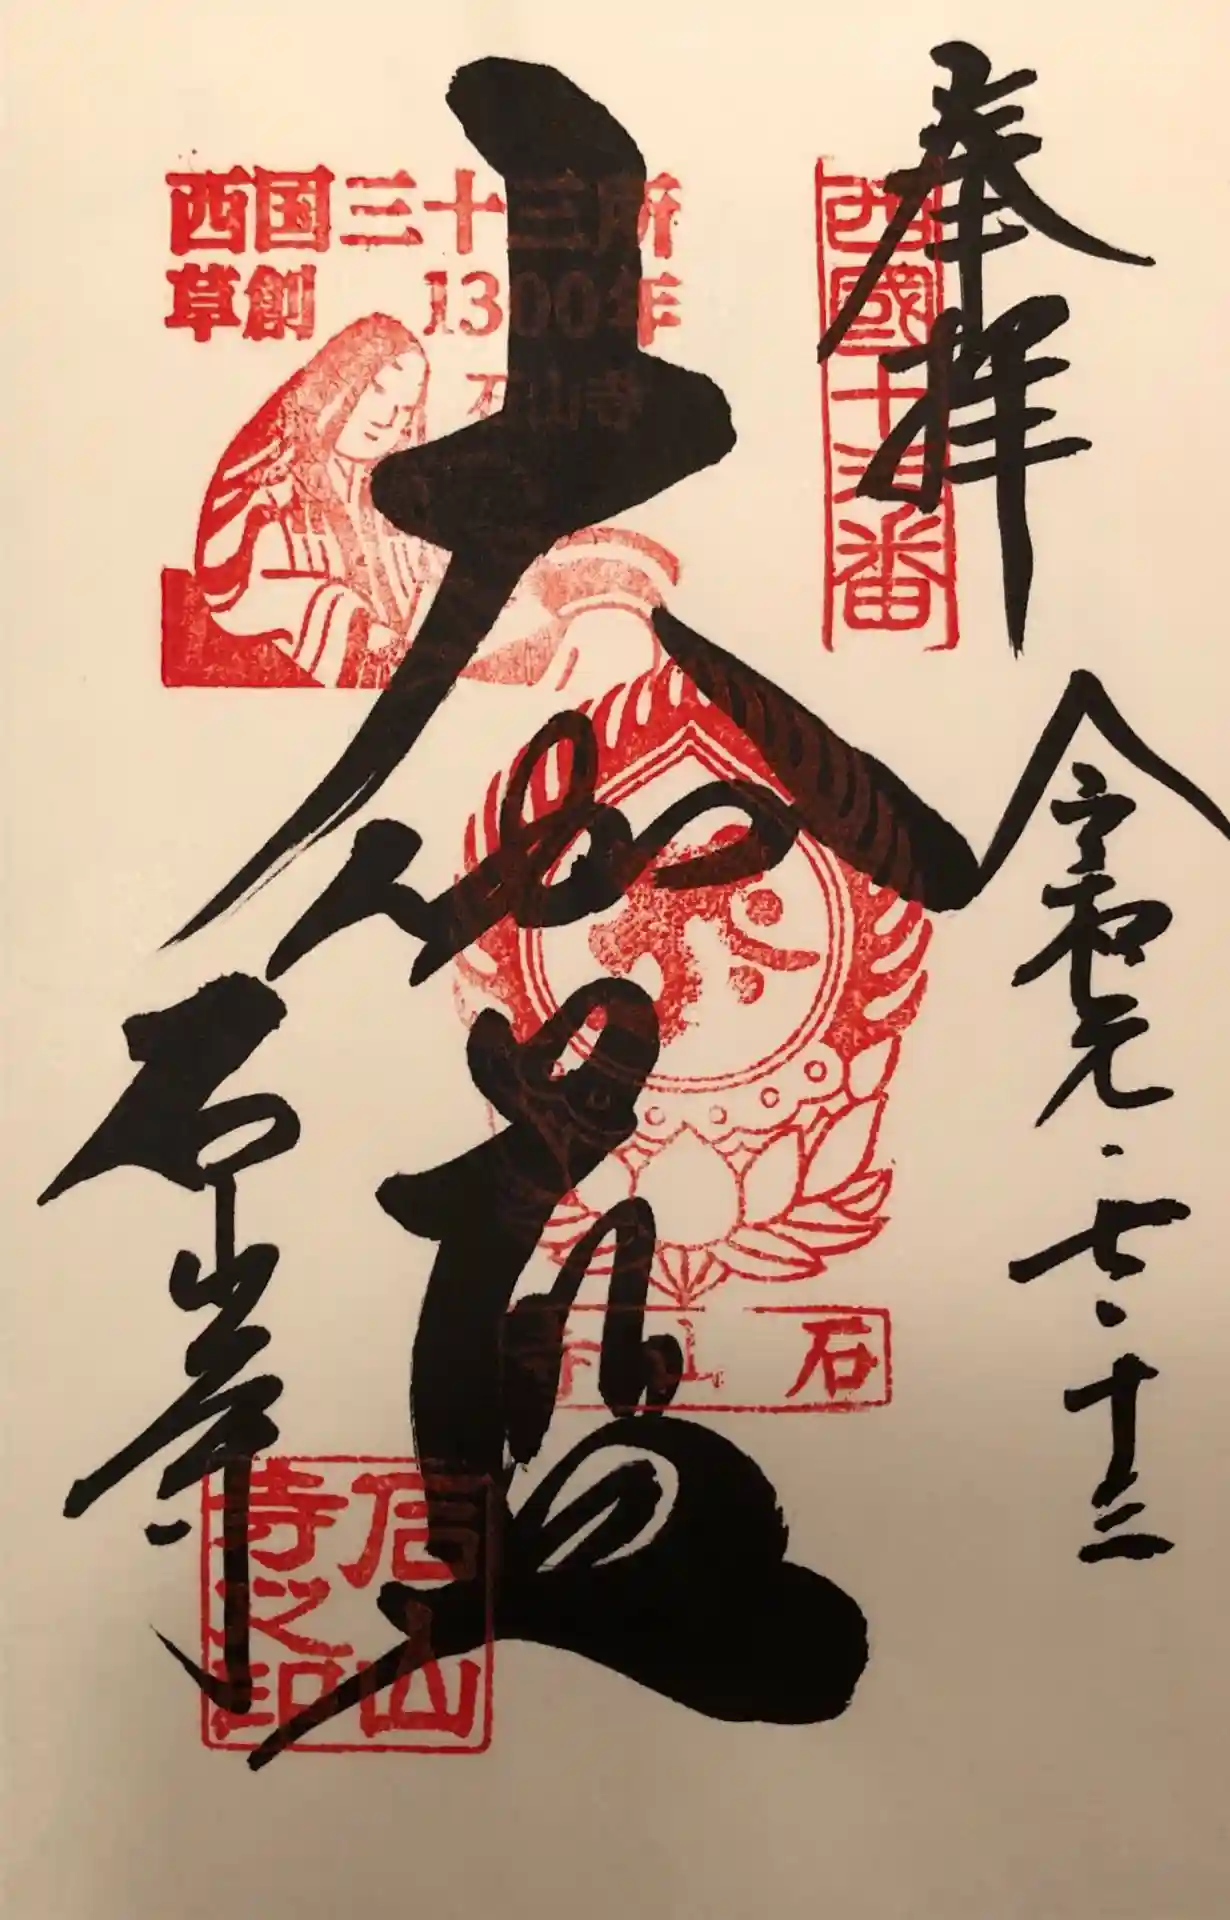 奉拝
西國十三番
令和元・七・十三
大伽藍
西国三十三所
草創 1300年
石山寺
石山寺
石山寺
石山寺之印